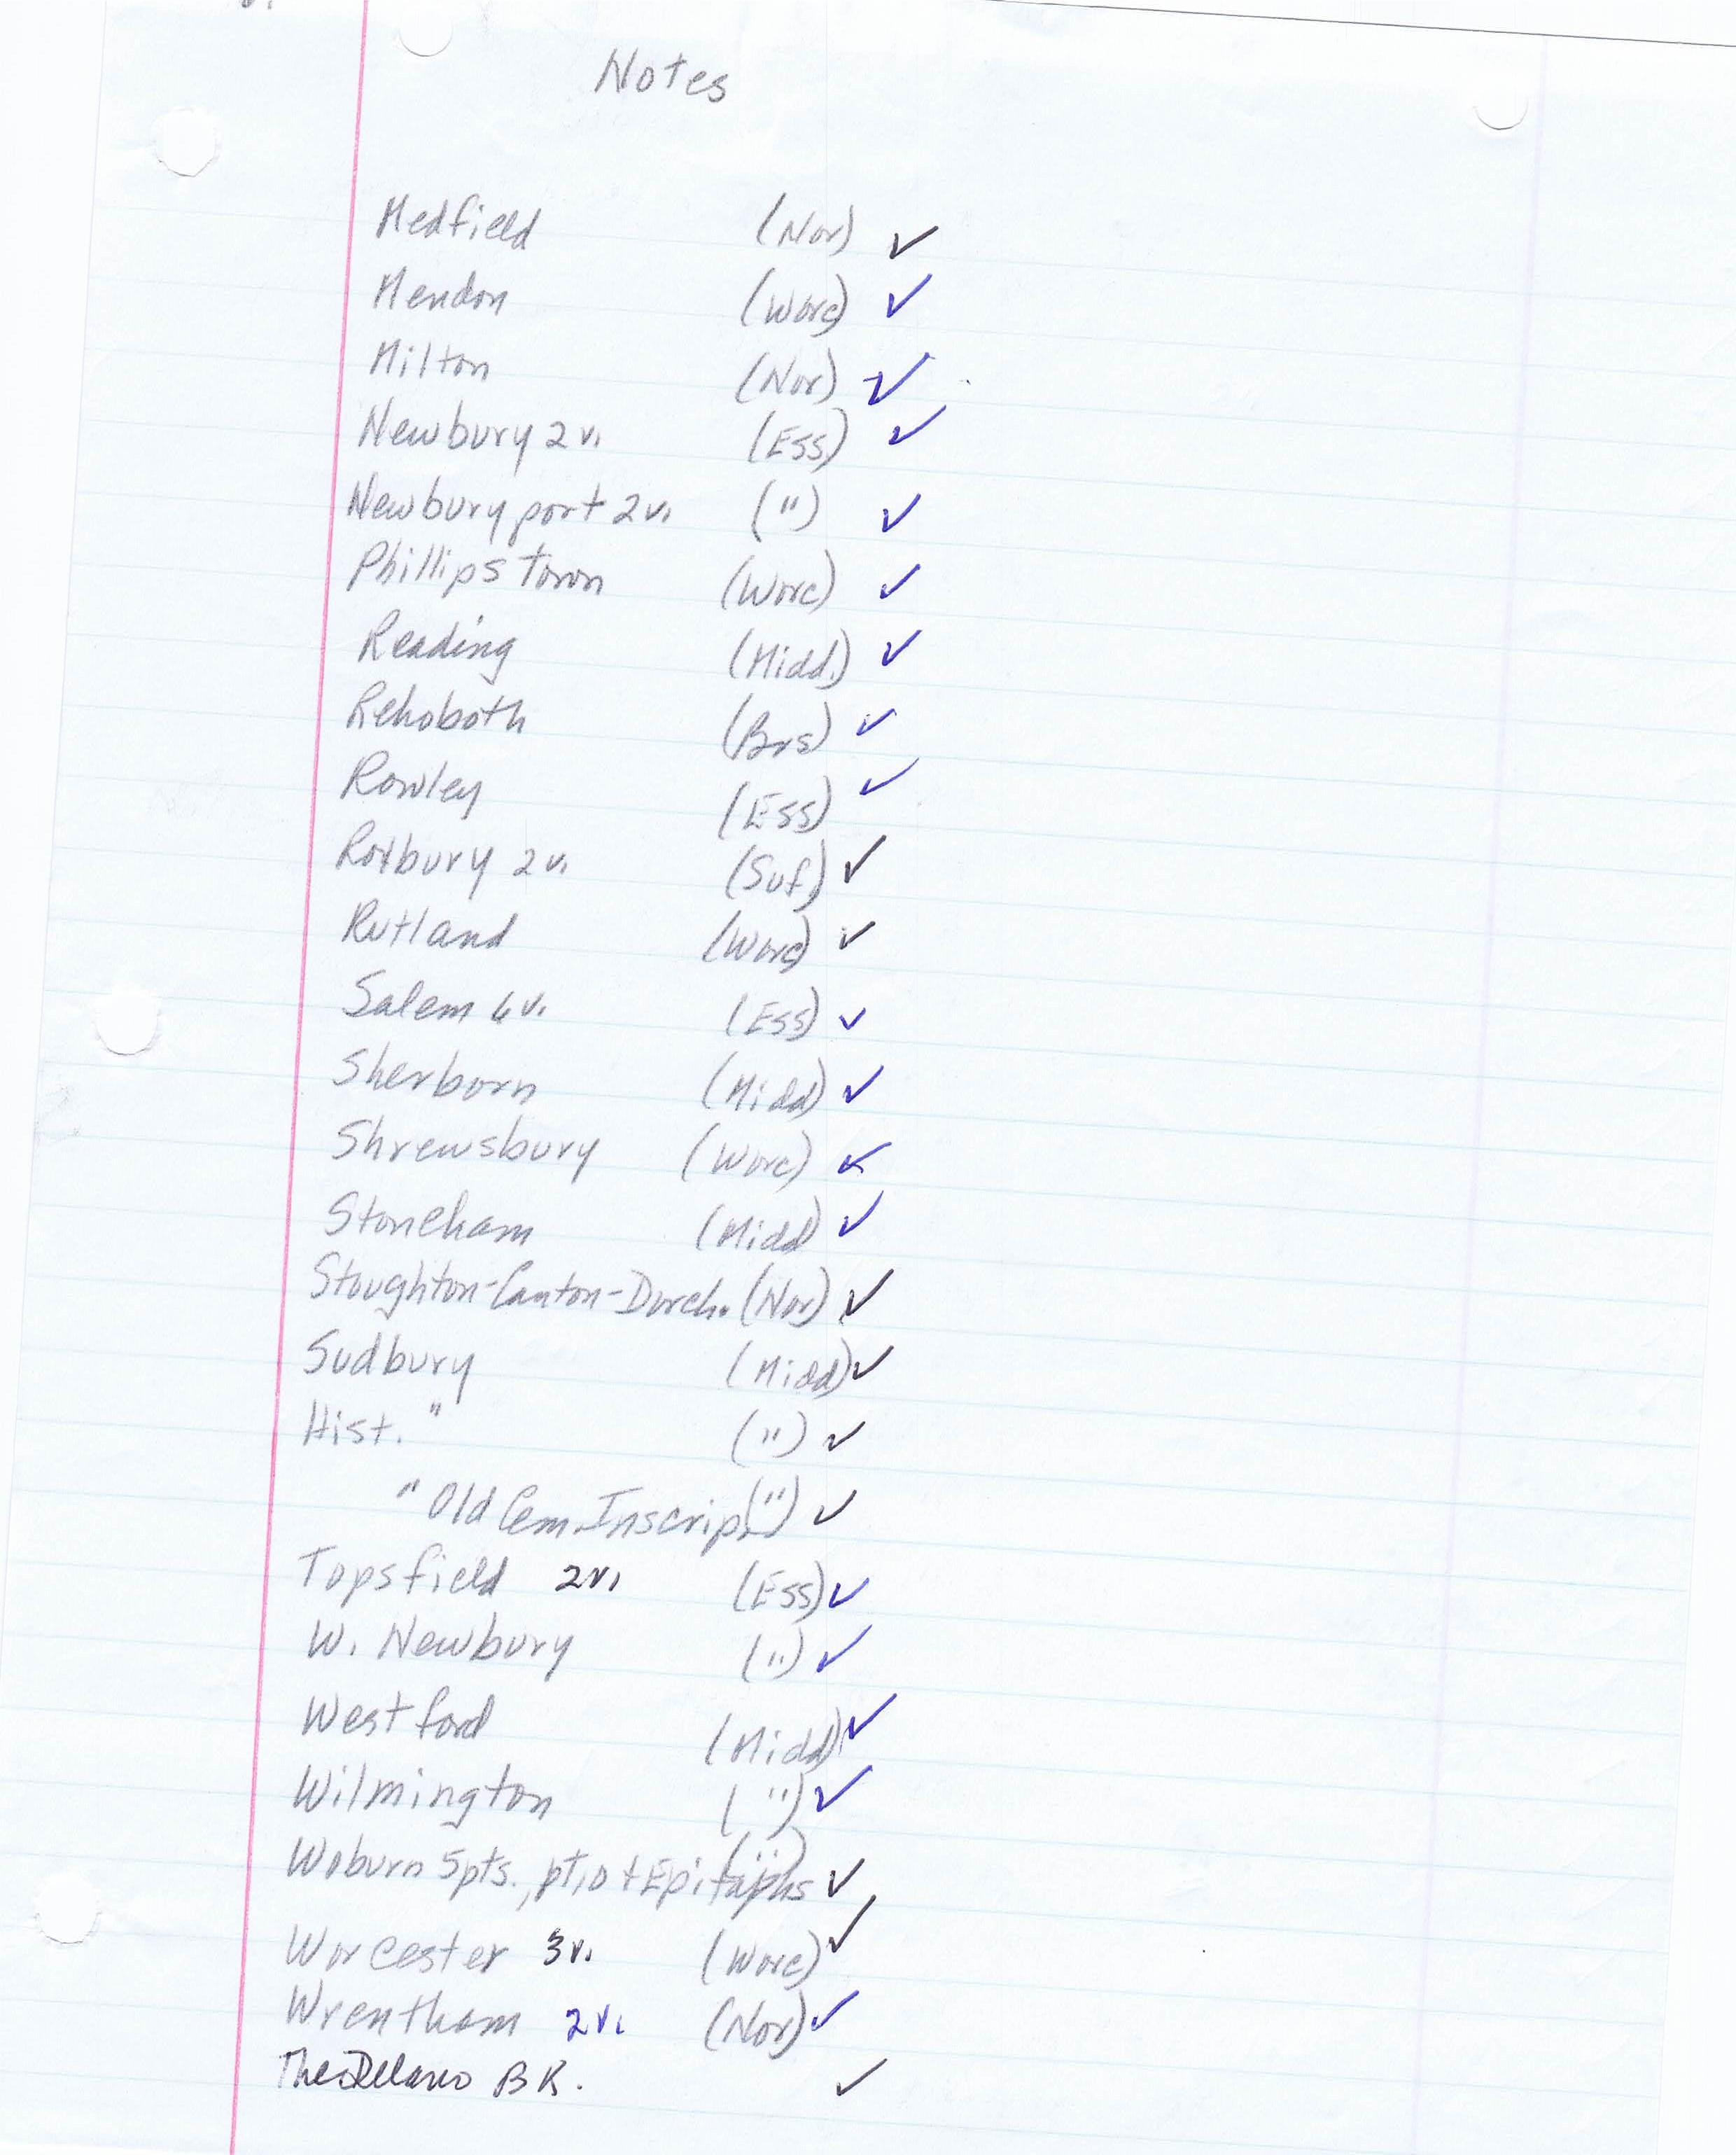 Notes
Medfield (Nor) ✓
Mendon (Worc) ✓
Milton (Nor) ✓
Newbury 2 v. (Ess) ✓
Newburyport 2 v. (") ✓
Phillipstown (Worc) ✓
Reading (Midd.) ✓
Rehoboth (Brs) ✓
Rowley (Ess) ✓
Roxbury 2 v. (Suf) ✓
Rutland (Worc) ✓
Salem 6 v. (Ess) ✓
Sherborn (Midd) ✓
Shrewsbury (Worc) ✓
Stoneham (Midd) ✓
Stoughton-Canton-Dorch. (Nor) ✓
Sudbury (Midd) ✓
Hist. " (") ✓
" Old Cem. Inscrip. (") ✓
Topsfield 2 v. (Ess) ✓
W. Newbury (") ✓
Westford (Midd) ✓
Wilmington (") ✓
Woburn 5 pts., pt. 10 + Epitaphs (") ✓
Worcester 3 v. (Worc) ✓
Wrentham 2 v. (Nor) ✓
The Delano BK. ✓